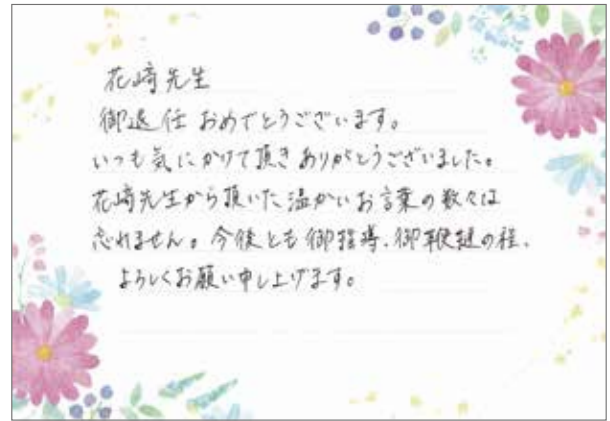 花崎先生
御退任 おめでとうございます。
いつも気にかけて頂きありがとうございました。
花崎先生から頂いた温かいお言葉の数々は
忘れません。今後とも御指導、御鞭撻の程、
よろしくお願い申し上げます。